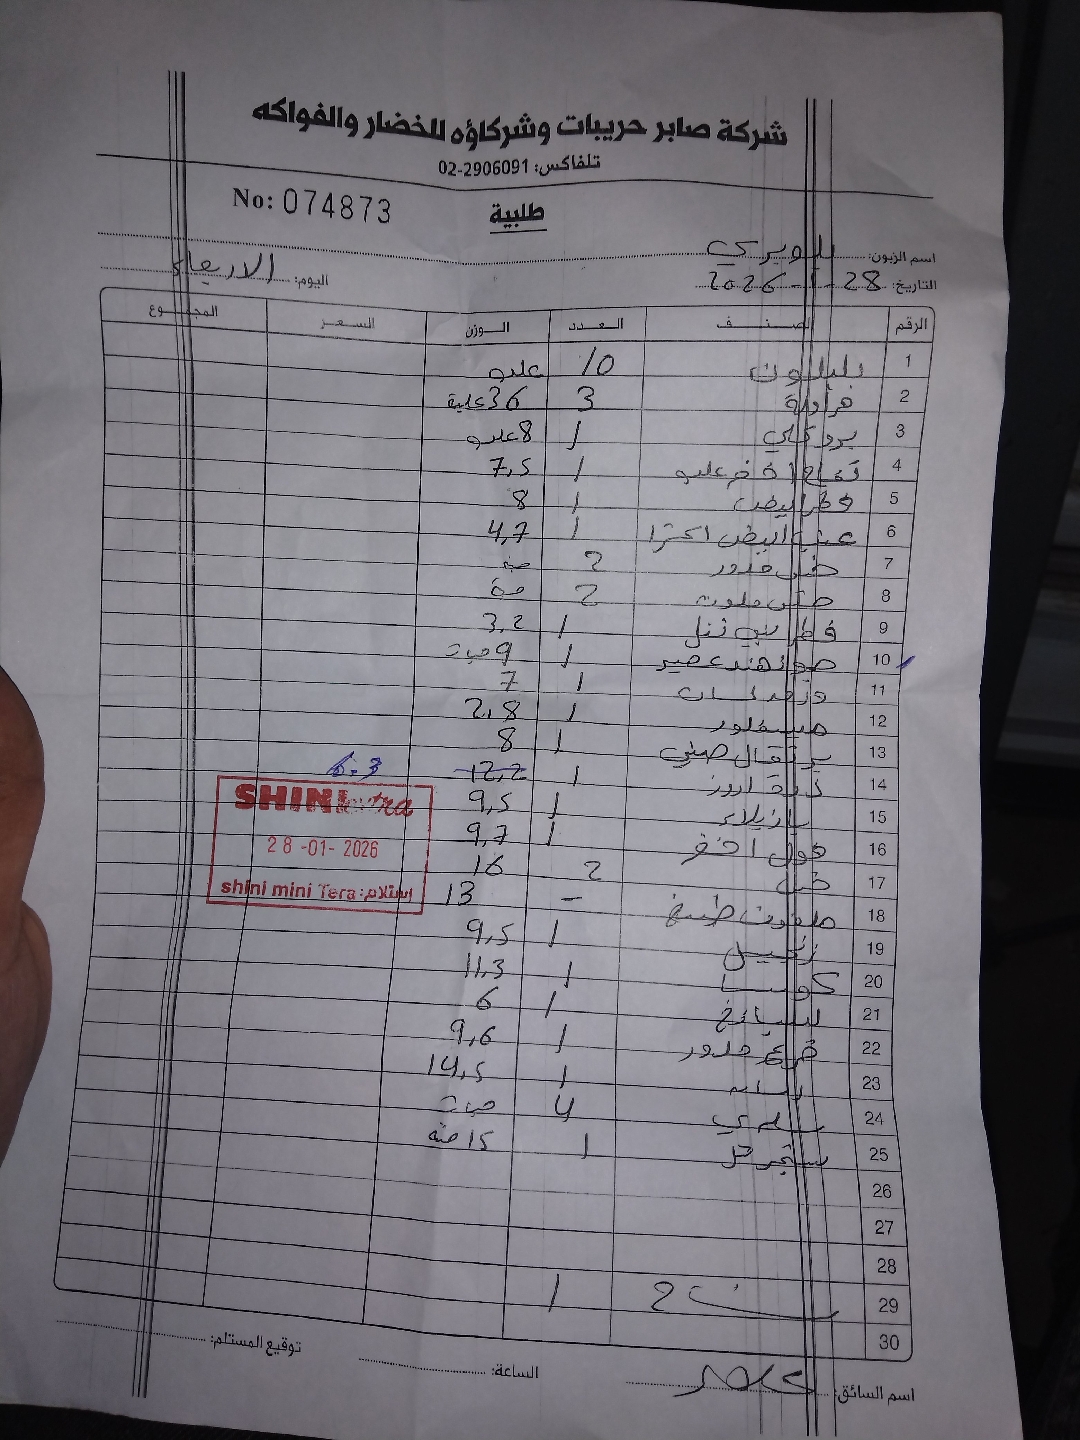 شركة صابر حريبات وشركاؤه للخضار والفواكه
تلفاكس: 02-2906091
No: 074873
طلبية
اسم الزبون:
التاريخ: 28-1-2026
اليوم: الاربعاء
الرقم الصنف العدد الوزن السعر المجموع
1 10 علبو
2 فراولة 3 36 علبة
3 بروكلي 1 8 علبو
4 تفاح اخضر علبو 1 7,5
5 فطر ابيض 1 8
6 عنب ابيض اكسترا 1 4,7
7 خس مدور 2
8 2
9 فطر 1 3,2
10 جوز هند عصير 1 9 حبات
11 1 7
12 1 2,8
13 برتقال صيني 1 8
14 ذرة 1 12,2 6.3
15 بازيلاء 1 9,5
16 فول اخضر 1 9,7
17 2 16
18 ملفوف طبيخ - 13
19 زنجبيل 1 9,5
20 كوسا 1 11,3
21 سبانخ 1 6
22 قرع مدور 1 9,6
23 1 14,5
24 4 حبات
25 1 15
26
27
28
29 2 1
30
SHINI extra
28-01-2026
استلام: shini mini Tera
توقيع المستلم:
الساعة:
اسم السائق: